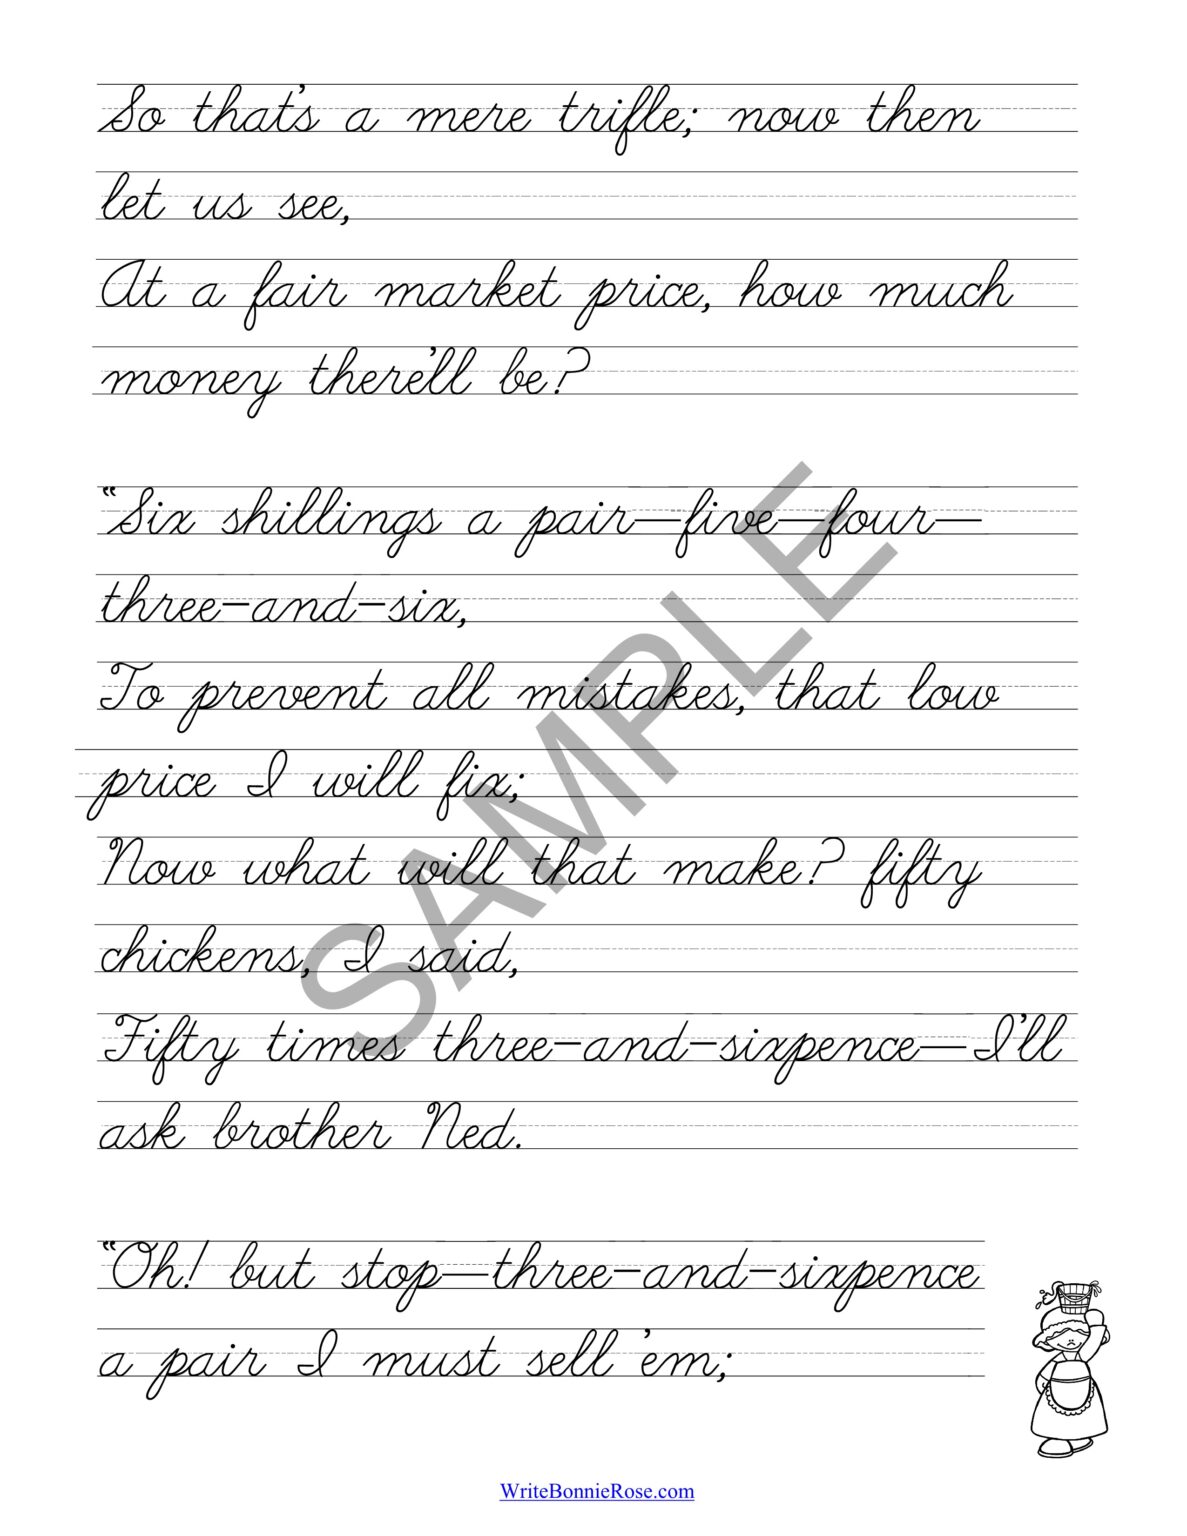 So that's a mere trifle; now then
let us see,
At a fair market price, how much
money there'll be?
“Six shillings a pair—five—four—
three-and-six,
To prevent all mistakes, that low
price I will fix;
Now what will that make? fifty
chickens, I said,
Fifty times three-and-sixpence—I'll
ask brother Ned.
“Oh! but stop—three-and-sixpence
a pair I must sell 'em;
SAMPLE
WriteBonnieRose.com